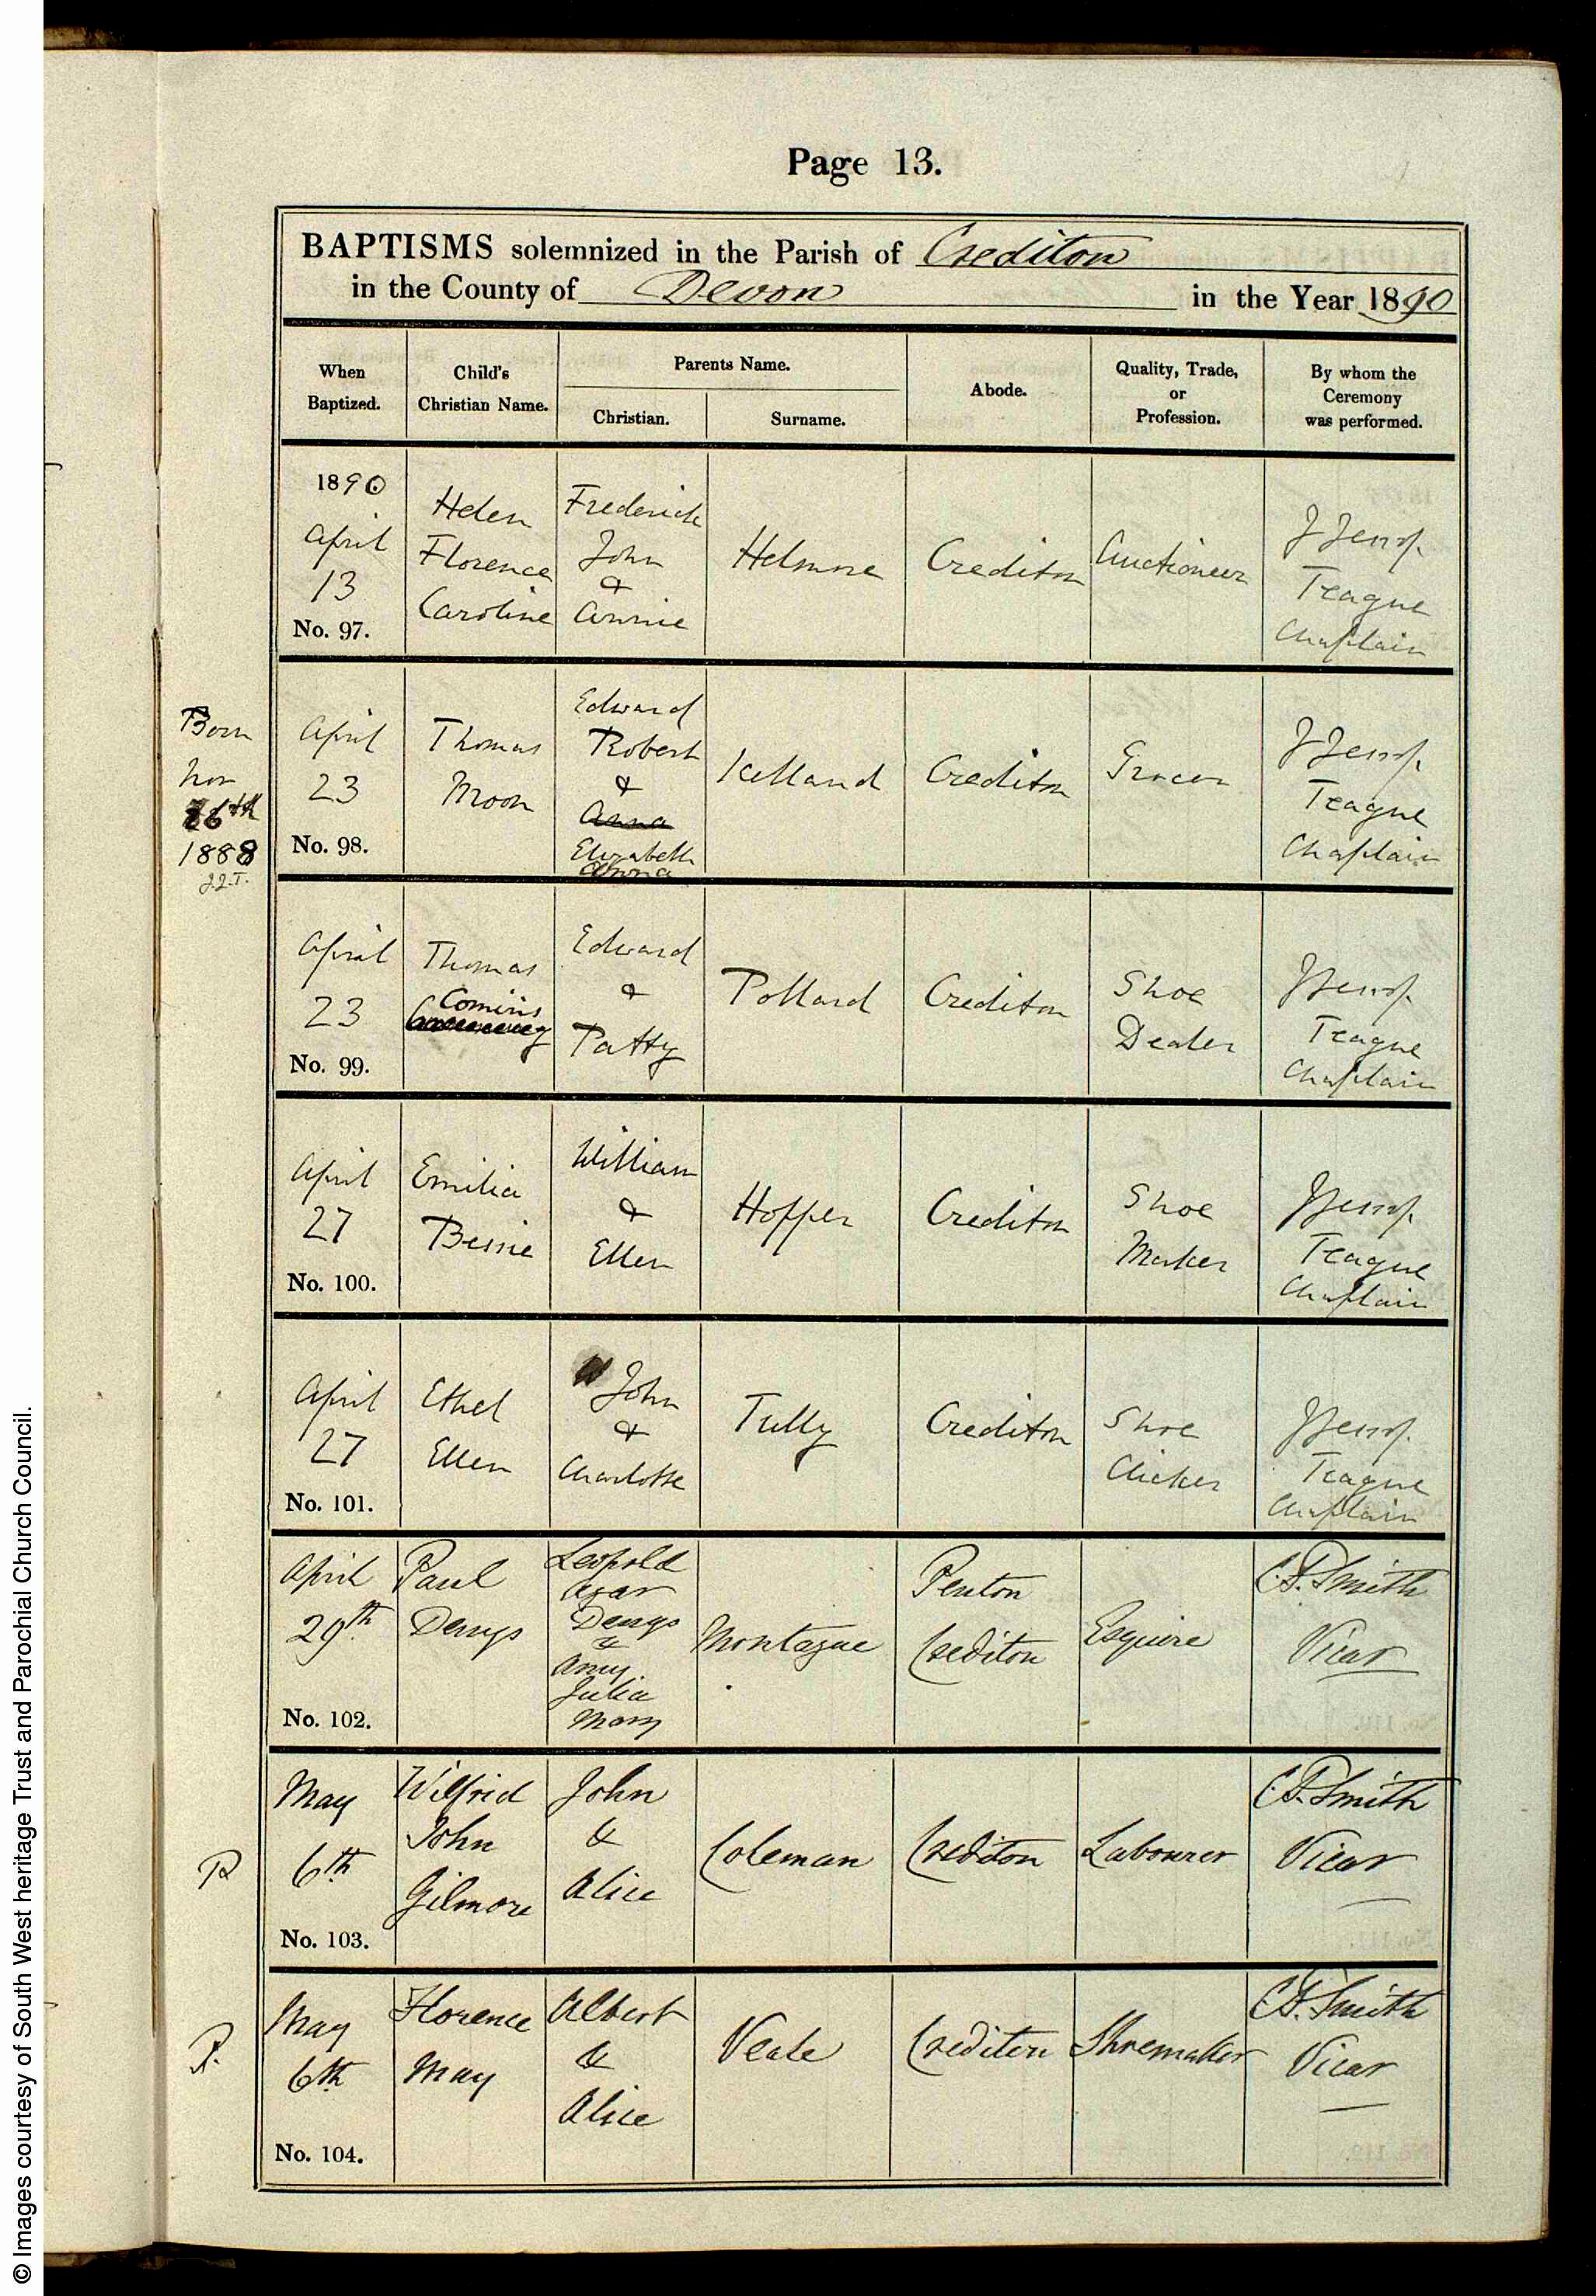 Page 13.
BAPTISMS solemnized in the Parish of Crediton
in the County of Devon in the Year 1890
When Baptized. Child's Christian Name. Parents Name. Christian. Surname. Abode. Quality, Trade, or Profession. By whom the Ceremony was performed.
1890
April
13
No. 97.
Helen
Florence
Caroline
Frederick
John
&
Annie
Helmore
Crediton
Auctioneer
Teague
Chaplain
Born
Nov
26th
1888
J.J.T.
April
23
No. 98.
Thomas
Moon
Edward
Robert
&
Anna
Elizabeth
Anna
Kelland
Crediton
Grocer
Teague
Chaplain
April
23
No. 99.
Thomas
Comins
Edward
&
Patty
Pollard
Crediton
Shoe
Dealer
Teague
Chaplain
April
27
No. 100.
Emilia
Bessie
William
&
Ellen
Hopper
Crediton
Shoe
Maker
Teague
Chaplain
April
27
No. 101.
Ethel
Ellen
John
&
Charlotte
Tully
Crediton
Shoe
Clicker
Teague
Chaplain
April
29th
No. 102.
Paul
Denys
Leopold
Agar
Denys
&
Amy
Julia
Mary
Montague
Penton
Crediton
Esquire
Smith
Vicar
P
May
6th
No. 103.
Wilfrid
John
Gilmore
John
&
Alice
Coleman
Crediton
Labourer
Smith
Vicar
P.
May
6th
No. 104.
Florence
May
Albert
&
Alice
Veale
Crediton
Shoemaker
Smith
Vicar
© Images courtesy of South West heritage Trust and Parochial Church Council.